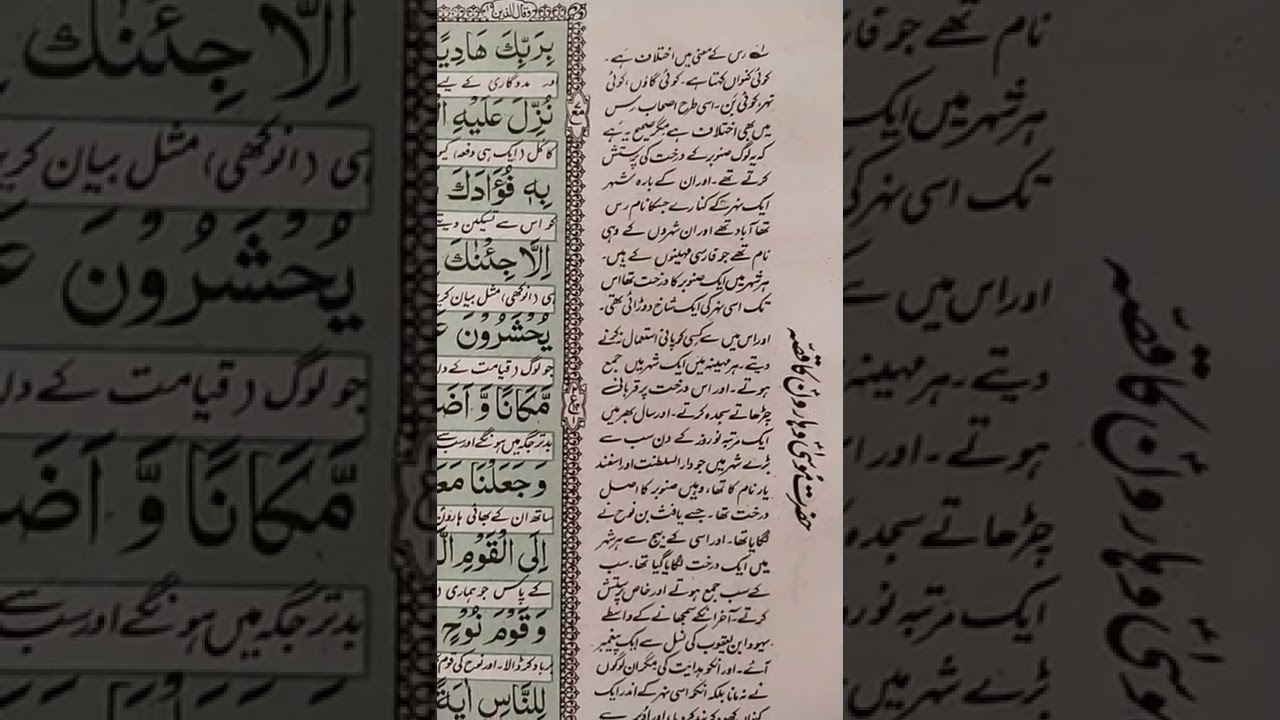 وقال الذین ۱۹
بِرَبِّكَ هَادِیًا
اور مددگاری کے لیے
نُزِّلَ عَلَیْهِ
کا کل (ایک ہی دفعہ) کیوں
بِهٖ فُؤَادَكَ
کو اس سے تسکین دیتے
اِلَّا جِئْنٰكَ
ہی (انوکھی) مثل بیان کریں
یُحْشَرُوْنَ عَ
جو لوگ (قیامت کے دن
مَّكَانًا وَّ اَضَ
بدتر جگہ میں ہونگے اور سب سے
وَ جَعَلْنَا مَعَ
ساتھ ان کے بھائی ہارون
اِلَی الْقَوْمِ الَّ
کے پاس جو ہماری
وَ قَوْمَ نُوْحٍ
برباد کر ڈالا۔ اور نوح کی قوم
لِلنَّاسِ اٰیَةً
مع
۱؎ رس کے معنی میں اختلاف ہے۔
کوئی کنواں کہتا ہے۔ کوئی گاؤں، کوئی
نہر، کوئی بن۔ اسی طرح اصحاب رس
میں بھی اختلاف ہے مگر صحیح یہ ہے
کہ یہ لوگ صنوبر کے درخت کی پرستش
کرتے تھے۔ اور ان کے بارہ شہر
ایک نہر کے کنارے جسکا نام رس
تھا آباد تھے اور ان شہروں کے وہی
نام تھے جو فارسی مہینوں کے ہیں۔
ہر شہر میں ایک صنوبر کا درخت تھا اس
تک اسی نہر کی ایک شاخ دوڑائی تھی۔
اور اس میں سے کسی کو پانی استعمال نہ کرنے
دیتے۔ ہر مہینہ میں ایک شہر میں جمع
ہوتے۔ اور اس درخت پر قربانی
چڑھاتے سجدہ کرتے۔ اور سال بھر میں
ایک مرتبہ نوروز کے دن سب سے
بڑے شہر میں جو دار السلطنت اور اسفند
یار نام کا تھا، وہیں صنوبر کا اصل
درخت تھا۔ جسے یافث بن نوح نے
لگایا تھا۔ اور اسی کے بیج سے ہر شہر
میں ایک درخت لگایا گیا تھا۔ سب
کے سب جمع ہوتے اور خاص پرستش
کرتے۔ آخر انکے سمجھانے کے واسطے
یہودا بن یعقوب کی نسل سے ایک پیغمبر
آئے۔ اور انکو ہدایت کی مگر ان لوگوں
نے نہ مانا بلکہ انکو اسی نہر کے اندر ایک
حضرت موسیٰ و ہارون کا قصّہ